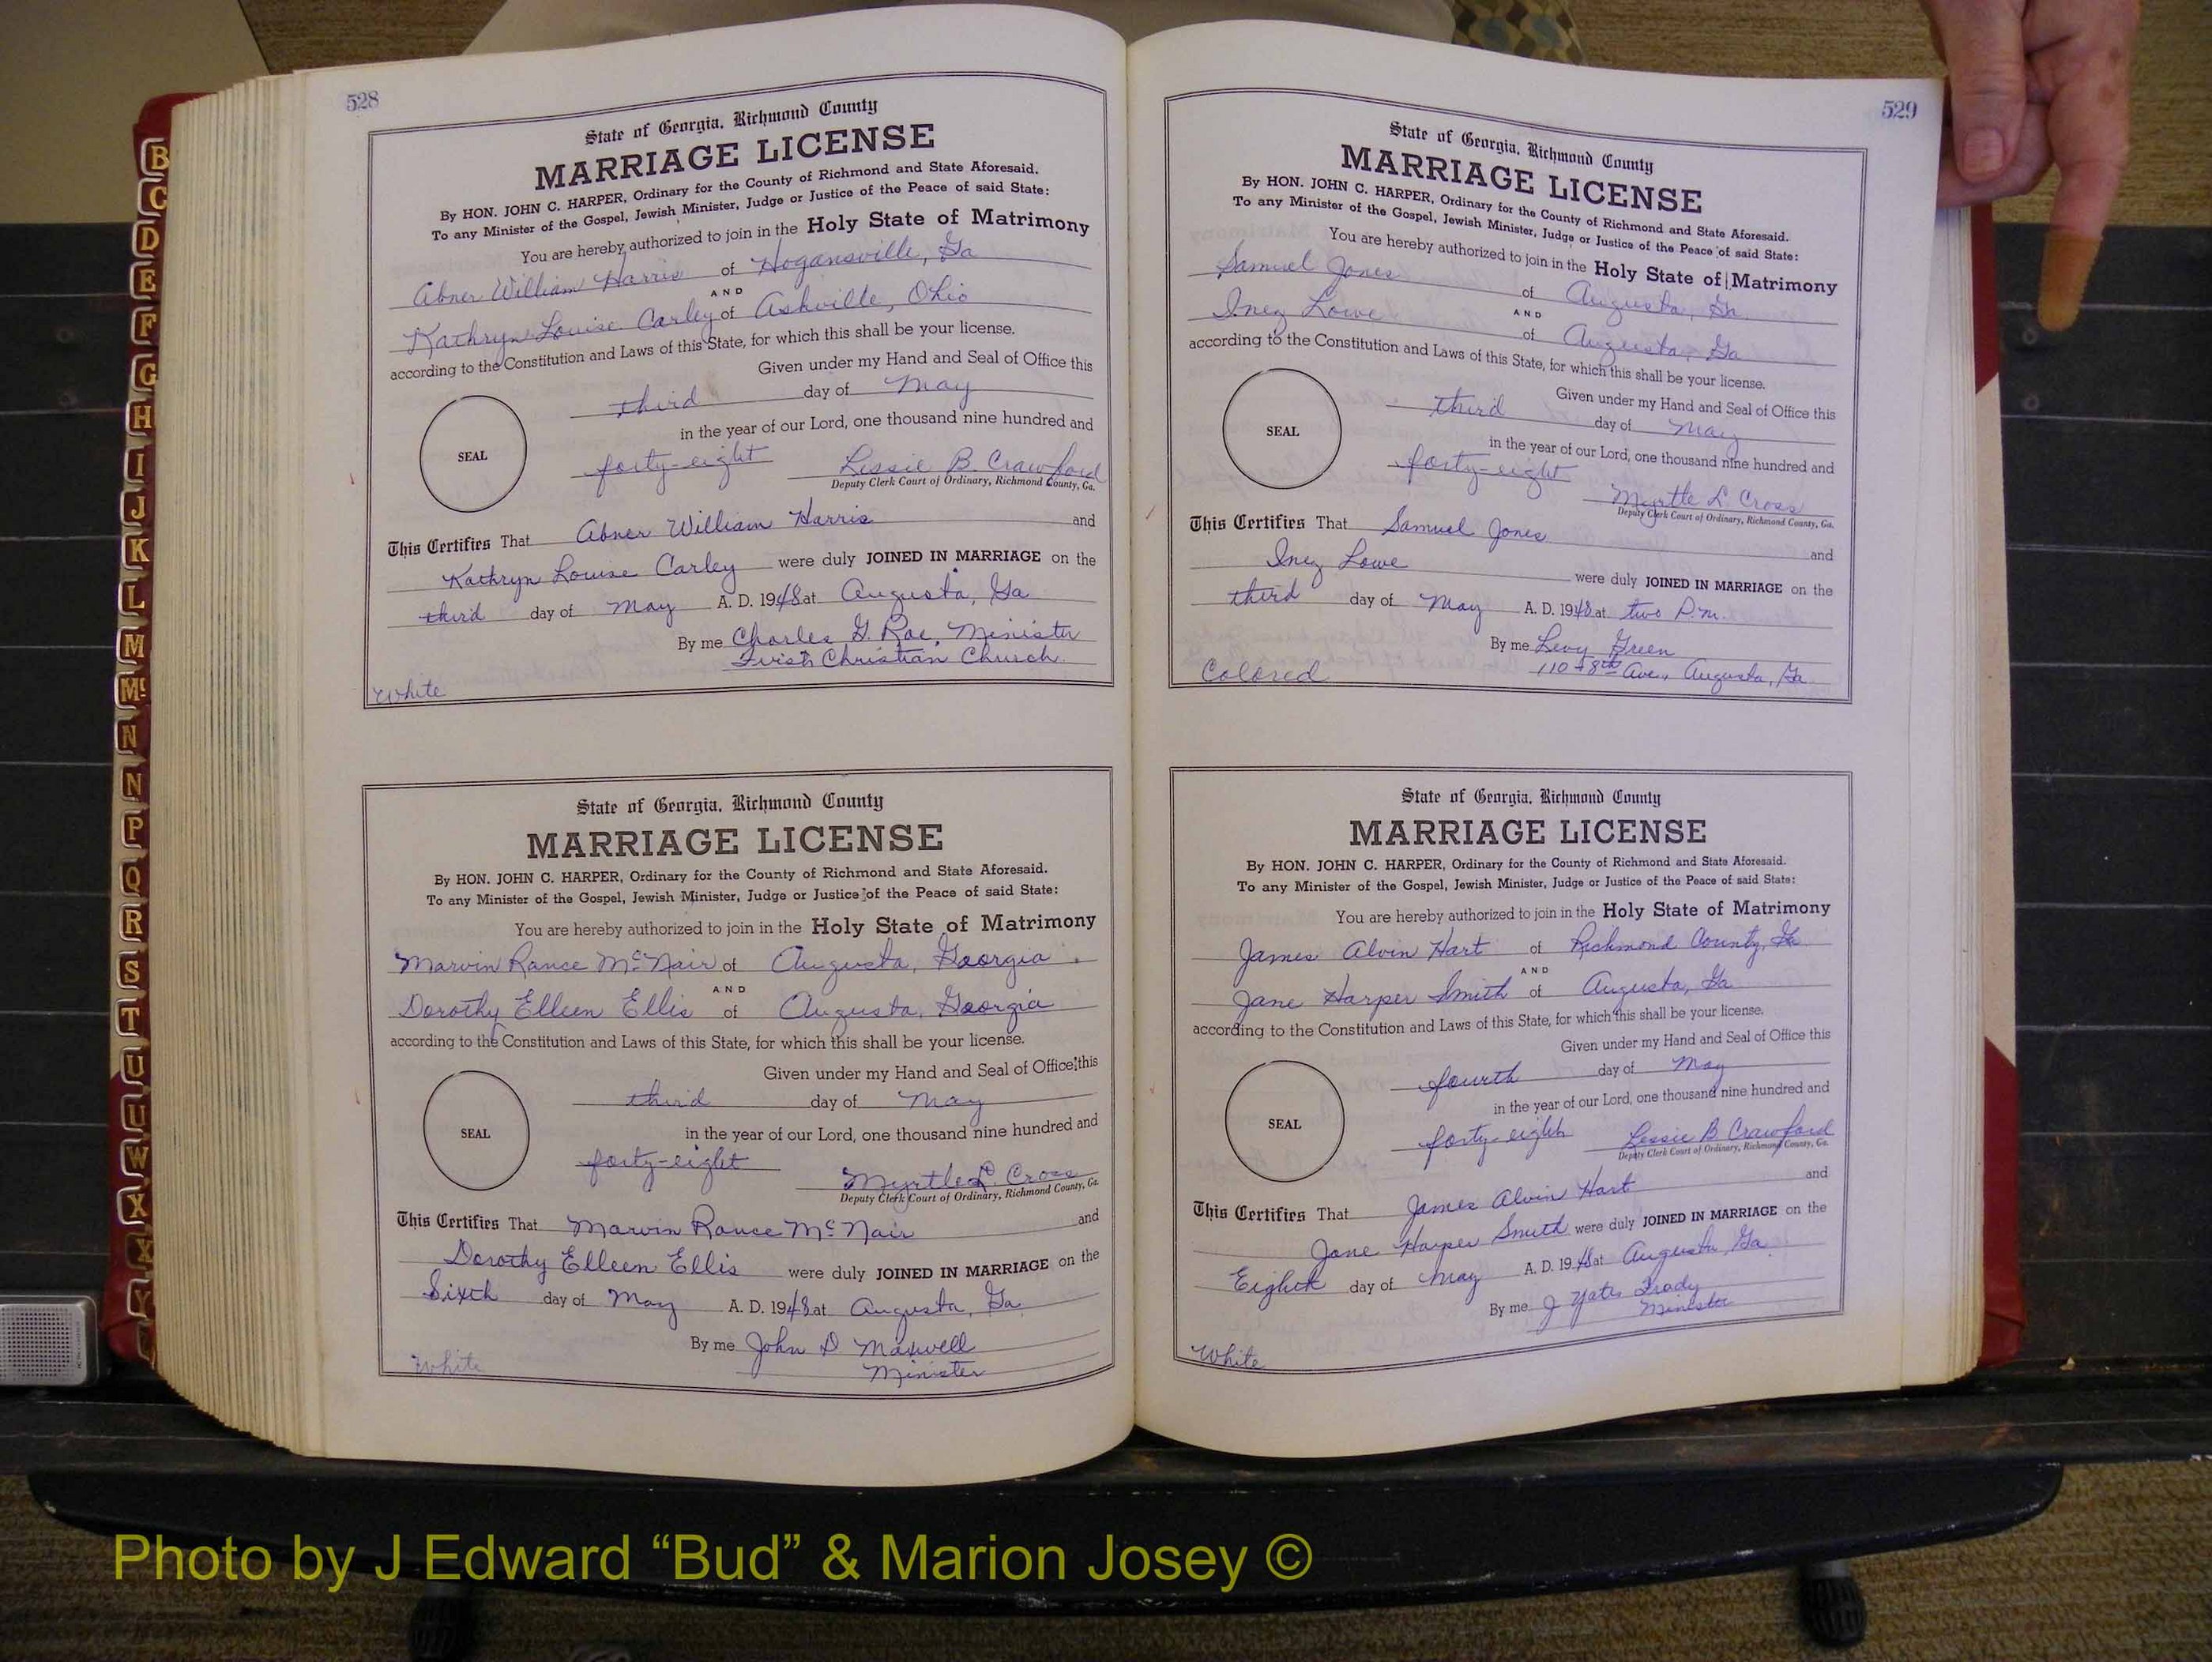 528
State of Georgia, Richmond County
MARRIAGE LICENSE
By HON. JOHN C. HARPER, Ordinary for the County of Richmond and State Aforesaid.
To any Minister of the Gospel, Jewish Minister, Judge or Justice of the Peace of said State:
You are hereby authorized to join in the Holy State of Matrimony
Abner William Harris of Hogansville, Ga
AND
Kathryn Louise Carley of Ashville, Ohio
according to the Constitution and Laws of this State, for which this shall be your license.
Given under my Hand and Seal of Office this
third day of May
in the year of our Lord, one thousand nine hundred and
SEAL
forty-eight Lessie B. Crawford
Deputy Clerk Court of Ordinary, Richmond County, Ga.
This Certifies That Abner William Harris and
Kathryn Louise Carley were duly JOINED IN MARRIAGE on the
third day of May A. D. 1948 at Augusta, Ga
By me Charles G. Rae, Minister
First Christian Church
White
State of Georgia, Richmond County
MARRIAGE LICENSE
By HON. JOHN C. HARPER, Ordinary for the County of Richmond and State Aforesaid.
To any Minister of the Gospel, Jewish Minister, Judge or Justice of the Peace of said State:
You are hereby authorized to join in the Holy State of Matrimony
Marvin Rance McNair of Augusta, Georgia
AND
Dorothy Elleen Ellis of Augusta, Georgia
according to the Constitution and Laws of this State, for which this shall be your license.
Given under my Hand and Seal of Office this
third day of May
in the year of our Lord, one thousand nine hundred and
SEAL
forty-eight Myrtle L. Cross
Deputy Clerk Court of Ordinary, Richmond County, Ga.
This Certifies That Marvin Rance McNair and
Dorothy Elleen Ellis were duly JOINED IN MARRIAGE on the
Sixth day of May A. D. 1948 at Augusta, Ga.
By me John D Maxwell
Minister
White
529
State of Georgia, Richmond County
MARRIAGE LICENSE
By HON. JOHN C. HARPER, Ordinary for the County of Richmond and State Aforesaid.
To any Minister of the Gospel, Jewish Minister, Judge or Justice of the Peace of said State:
You are hereby authorized to join in the Holy State of Matrimony
Samuel Jones of Augusta, Ga.
AND
Inez Lowe of Augusta, Ga
according to the Constitution and Laws of this State, for which this shall be your license.
Given under my Hand and Seal of Office this
third day of May
in the year of our Lord, one thousand nine hundred and
SEAL
forty-eight Myrtle L Cross
Deputy Clerk Court of Ordinary, Richmond County, Ga.
This Certifies That Samuel Jones and
Inez Lowe were duly JOINED IN MARRIAGE on the
third day of May A. D. 1948 at two P.m.
By me Levy Green
110-8th Ave., Augusta, Ga.
Colored
State of Georgia, Richmond County
MARRIAGE LICENSE
By HON. JOHN C. HARPER, Ordinary for the County of Richmond and State Aforesaid.
To any Minister of the Gospel, Jewish Minister, Judge or Justice of the Peace of said State:
You are hereby authorized to join in the Holy State of Matrimony
James Alvin Hart of Richmond County, Ga
AND
Jane Harper Smith of Augusta, Ga
according to the Constitution and Laws of this State, for which this shall be your license.
Given under my Hand and Seal of Office this
fourth day of May
in the year of our Lord, one thousand nine hundred and
SEAL
forty-eighth Lessie B Crawford
Deputy Clerk Court of Ordinary, Richmond County, Ga.
This Certifies That James Alvin Hart and
Jane Harper Smith were duly JOINED IN MARRIAGE on the
Eighth day of May A. D. 1948 at Augusta, Ga
By me J Yates
Minister
White
B
C
D
E
F
G
H
I
J
K
L
M
Mc
N
N
P
Q
R
S
T
U
U
W
X
X
Y
Photo by J Edward “Bud” & Marion Josey ©